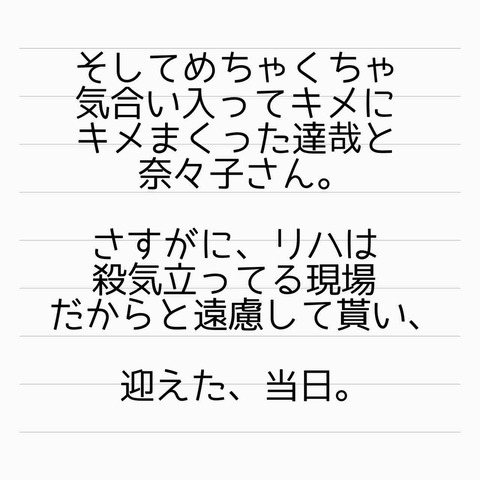 そしてめちゃくちゃ
気合い入ってキメに
キメまくった達哉と
奈々子さん。
さすがに、リハは
殺気立ってる現場
だからと遠慮して貰い、
迎えた、当日。